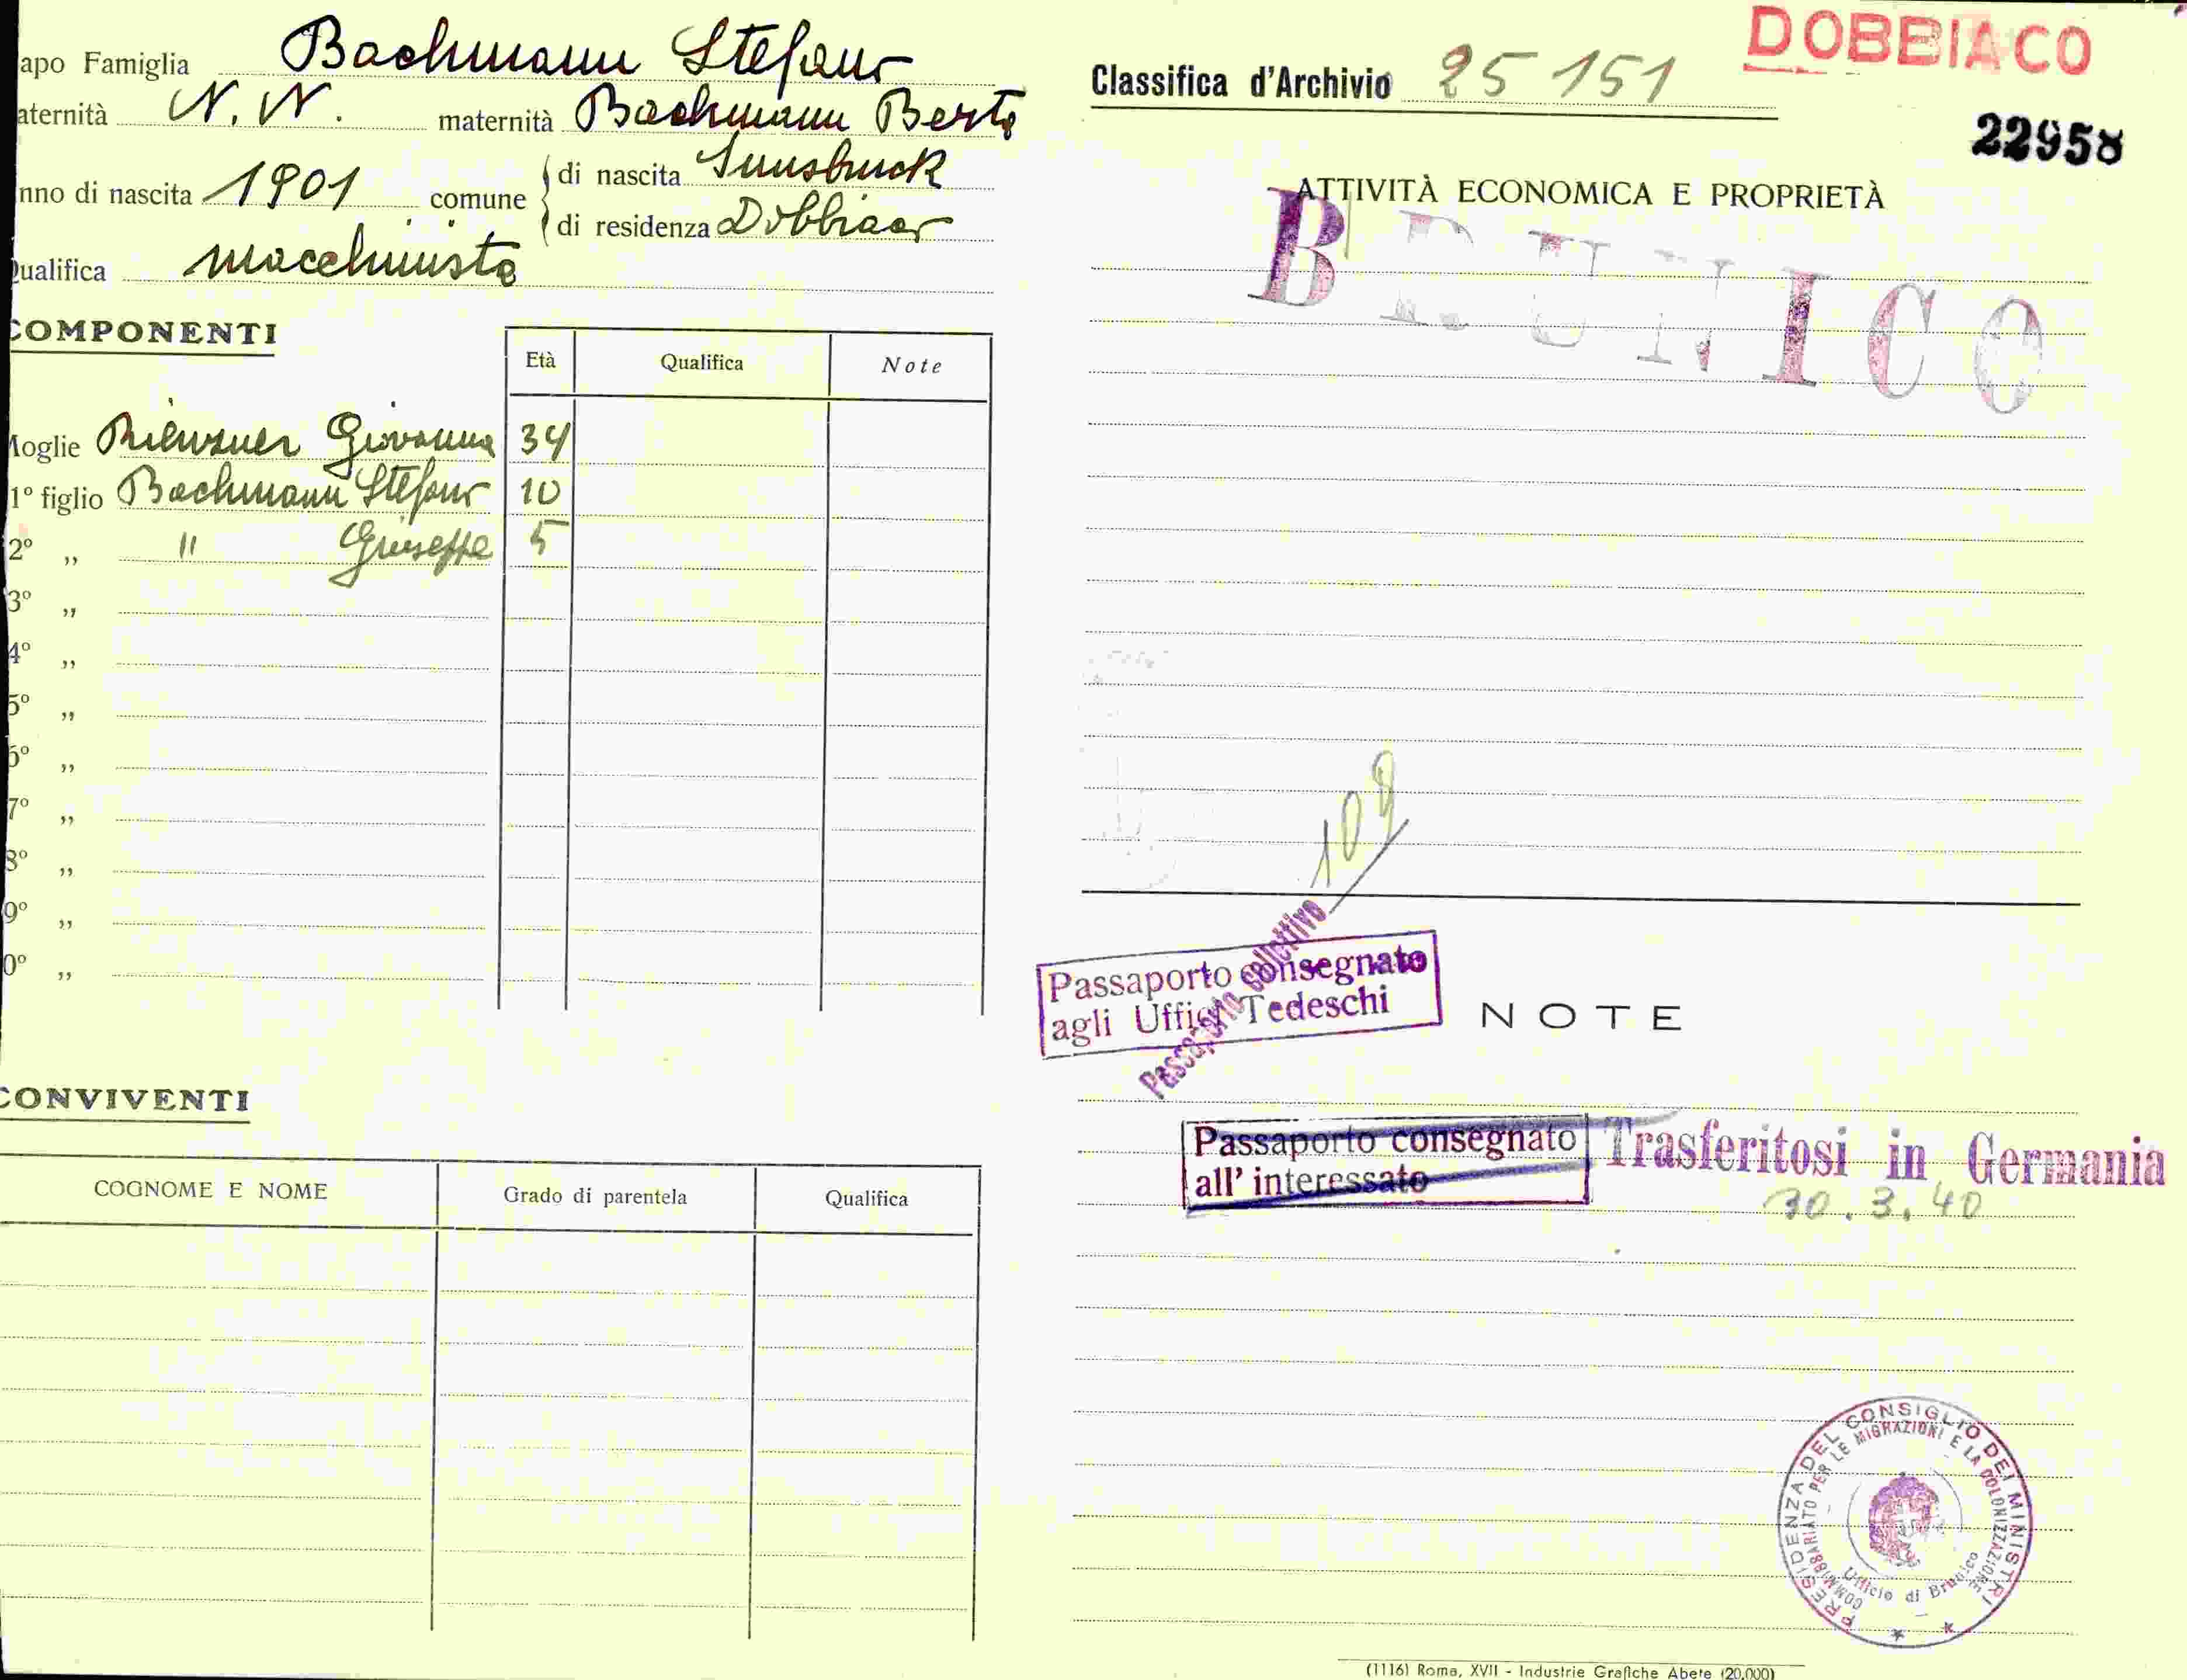 apo Famiglia Bachmann Stefano
aternità N. N. maternità Bachmann Berta
nno di nascita 1901 comune di nascita Innsbruck
di residenza Dobbiaco
ualifica macchinista
COMPONENTI
Età Qualifica Note
Moglie Giovanna 34
1º figlio Bachmann Stefano 10
2º „ " Giuseppe 5
3º „
4º „
5º „
6º „
7º „
8º „
9º „
0º „
CONVIVENTI
COGNOME E NOME Grado di parentela Qualifica
DOBBIACO
Classifica d'Archivio 25151
22958
ATTIVITÀ ECONOMICA E PROPRIETÀ
BRUNICO
109
Passaporto collettivo
Passaporto consegnato
agli Uffici Tedeschi
NOTE
Passaporto consegnato
all' interessato
Trasferitosi in Germania
30.3.40
PRESIDENZA DEL CONSIGLIO DEI MINISTRI
COMMISSARIATO PER LE MIGRAZIONI E LA COLONIZZAZIONE
Ufficio di Brunico
(1116) Roma, XVII - Industrie Grafiche Abete (20.000)